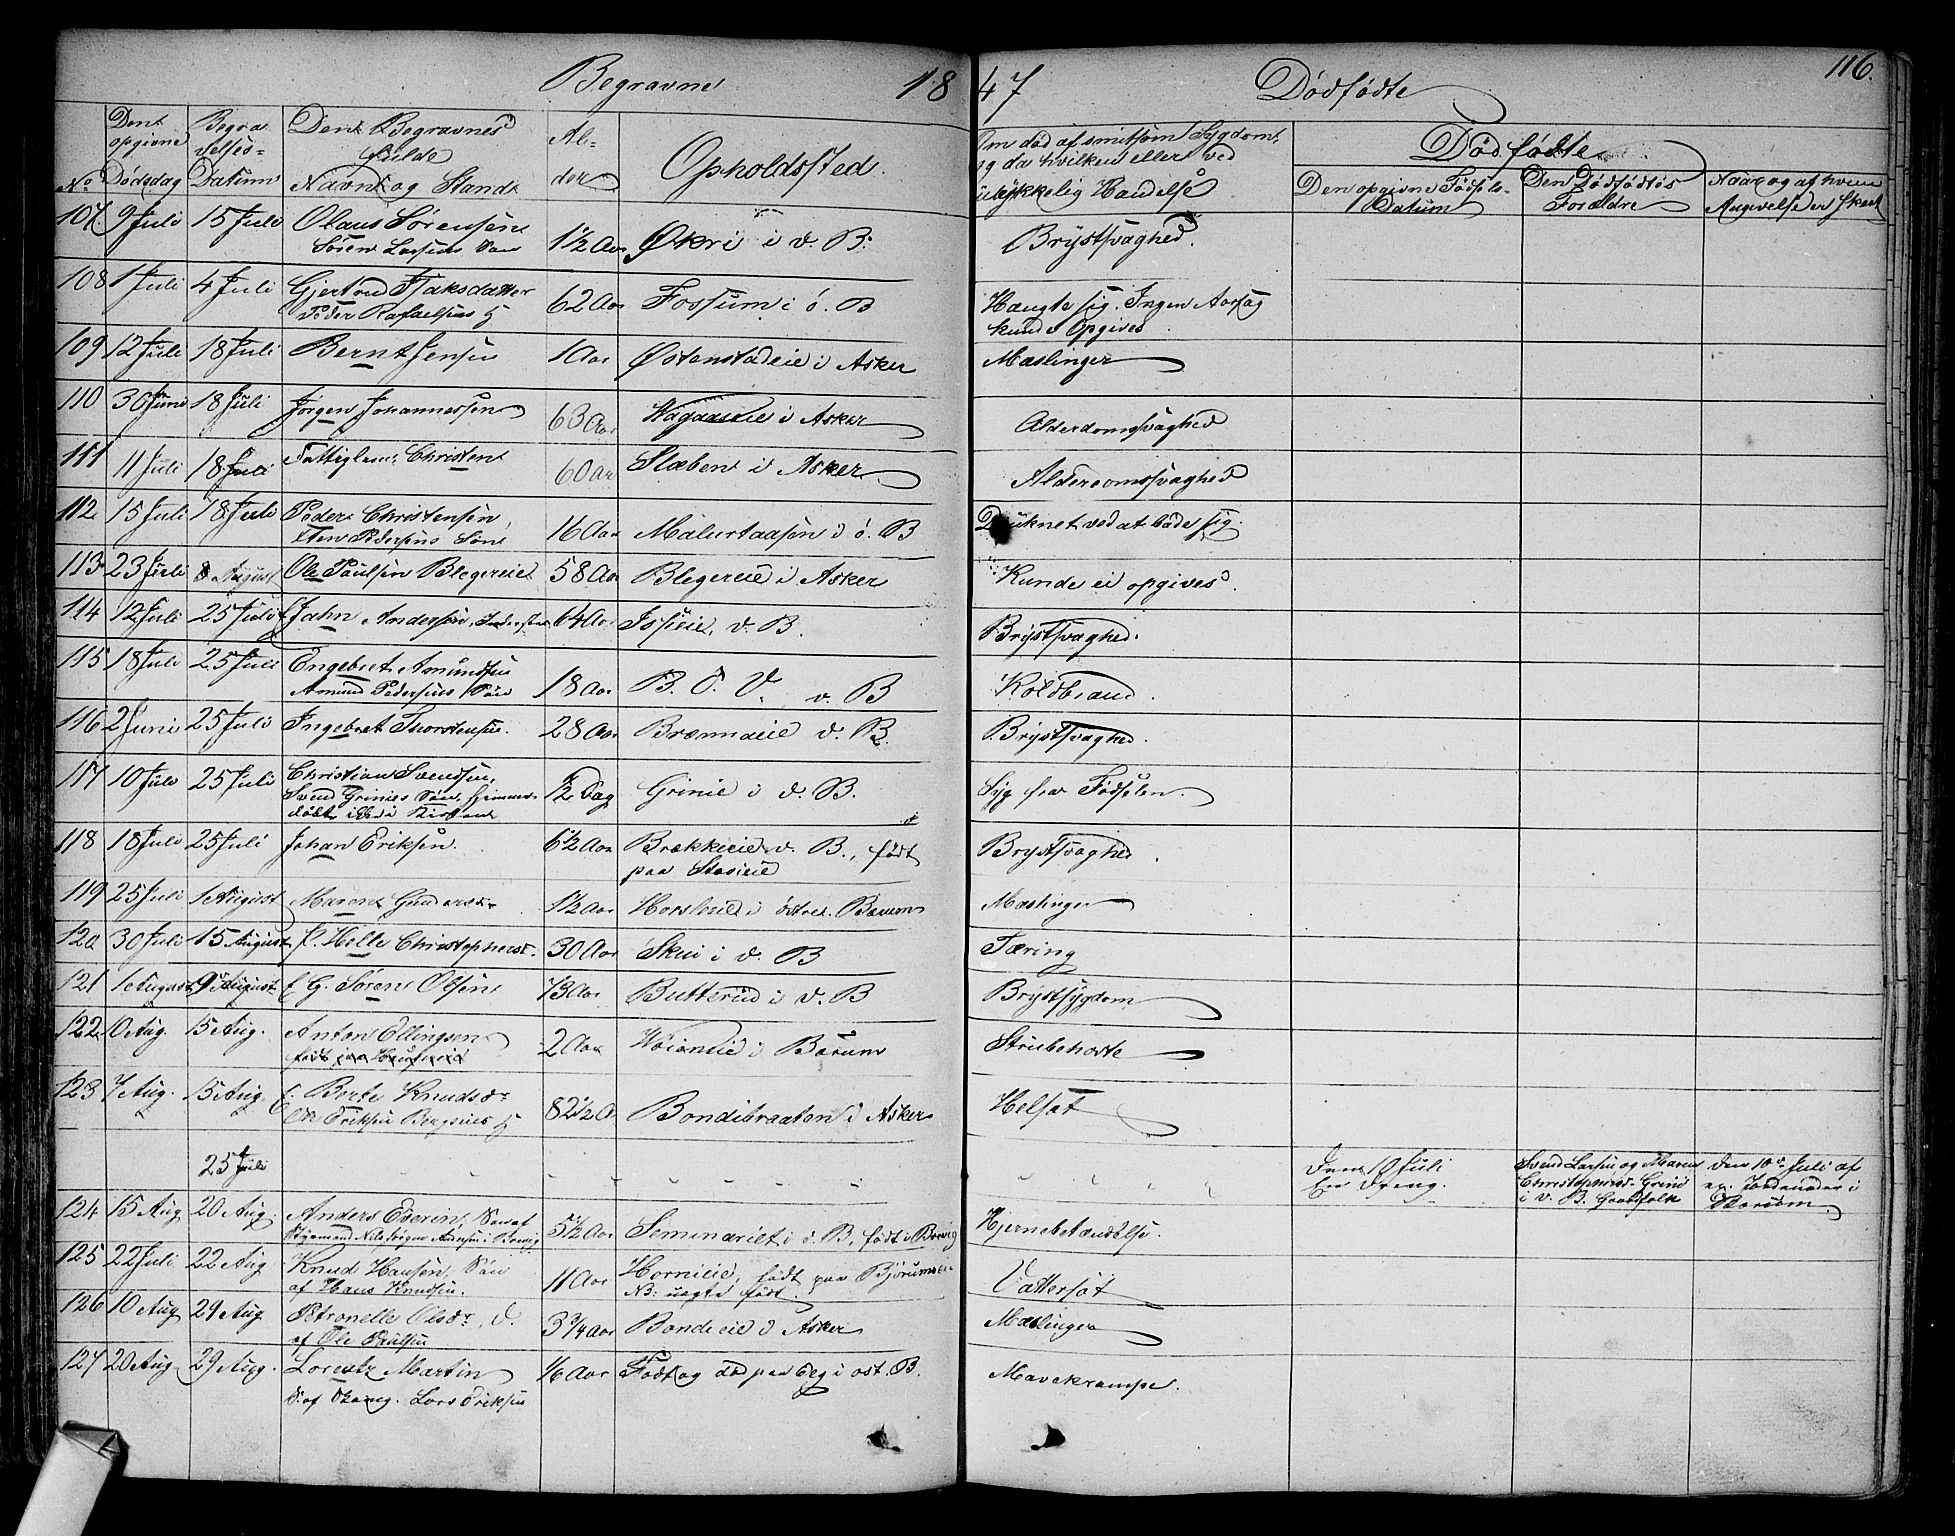 Begravne 1847 Dødfødte 116.
No
Den opgivne Dødsdag
Begravelses-Datum
Den Begravnes fulde Navn og Stand
Alder
Opholdssted.
Om død af smitsom Sygdom, og da hvilken eller ved ulykkelig Hændelse
Dødfødte
Den opgivne Fødsels-Datum
Den Dødfødtes Forældre
Naar og af hvem Angivelse er skeet
107. 9 Juli 15 Juli Olaus Sørensen 1½ Aar Økri i v. B: Brystsvaghed.
Søren Larsens Søn
108 1 Juli 4 Juli Gjertrud Isaksdatter 62 Aar Fossum i ö. B Hængte sig. Ingen Aarsag
Peder Rafaelsens H kunde Opgives
109 12 Juli 18 Juli Bernt Jensen 1 Aar Østenstadeie i Asker Mæslinger
110 30 Juni 18 Juli Jørgen Johannessen 63 Aar i Asker Alderdomssvaghed
111 11 Juli 18 Juli Fattiglem Christen 60 Aar Slæben i Asker Alderdomssvaghed
112 15 Juli 18 Juli Peder Christensen 16 Aar i ö. B Druknet ved at bade sig.
Pedersens Søn
113 23 Juli 8 August Ole Paulsen Blegereie 58 Aar Blegereie i Asker Kunde ei opgives.
114 12 Juli 25 Juli f Jahn Andersen, 64 Aar v. B. Brystsvaghed.
115 18 Juli 25 Juli Engebret Amundsen 18 Aar B. O. V. v. B Koldbrand.
Amund Pedersens Søn
116 2 Juni 25 Juli Ingebret Thorstensen. 28 Aar Brænnaeie v. B. Brystsvaghed.
117 10 Juli 25 Juli Christian Svendsen, ½ Dag Grinie i v. B. Syg fra Fødselen.
Svend Grinies Søn, hjemmedøbt
118 18 Juli 25 Juli Johan Eriksen. 6½ Aar Brækkeeie v. B., født Brystsvaghed.
paa
119 25 Juli 1 August Maren Gunders- 1½ Aar i östre Bærum Mæslinger
120 30 Juli 15 August f. Helle Christophersd. 30 Aar Skui i v. B Tæring
121 1 August 9 August f G. Søren Olsen 73 Aar Butterud i v. B Brystsygdom
122 10 Aug. 15 Aug. Anton Ellingsen 2 Aar i Bærum Strubehoste
født paa
123 7 Aug. 15 Aug. f. Berte Knudsdr 82½ A. Bondibraaten i Asker Helsot
Ole Eriksen H
25 Juli " " " " " " " Den 10 Juli Svend Larsen og Maren den 10de Juli af
En Dreng. Christophersd. Grini ex. Jordemoder i
i v. B. Gaardfolk
124 15 Aug 20 Aug. Anders Severin, Søn af 5½ Aar Seminariet i v. B, født i Brevig Hjernebetændelse.
125 22 Juli 22 Aug Knud Hansen, Søn 11 Aar Hornieie, født paa Vattersot
af Hans Knudsen. NB: uægte født.
126 10 Aug 29 Aug Petronelle Olsdr, D. 3¾ Aar Bondeeie i Asker Mæslinger
af Ole
127 20 Aug 29 Aug. Lorentz Martin 1/6 Aar Født og død paa i öst. B. Mavekrampe.
S: af Lars Eriksen